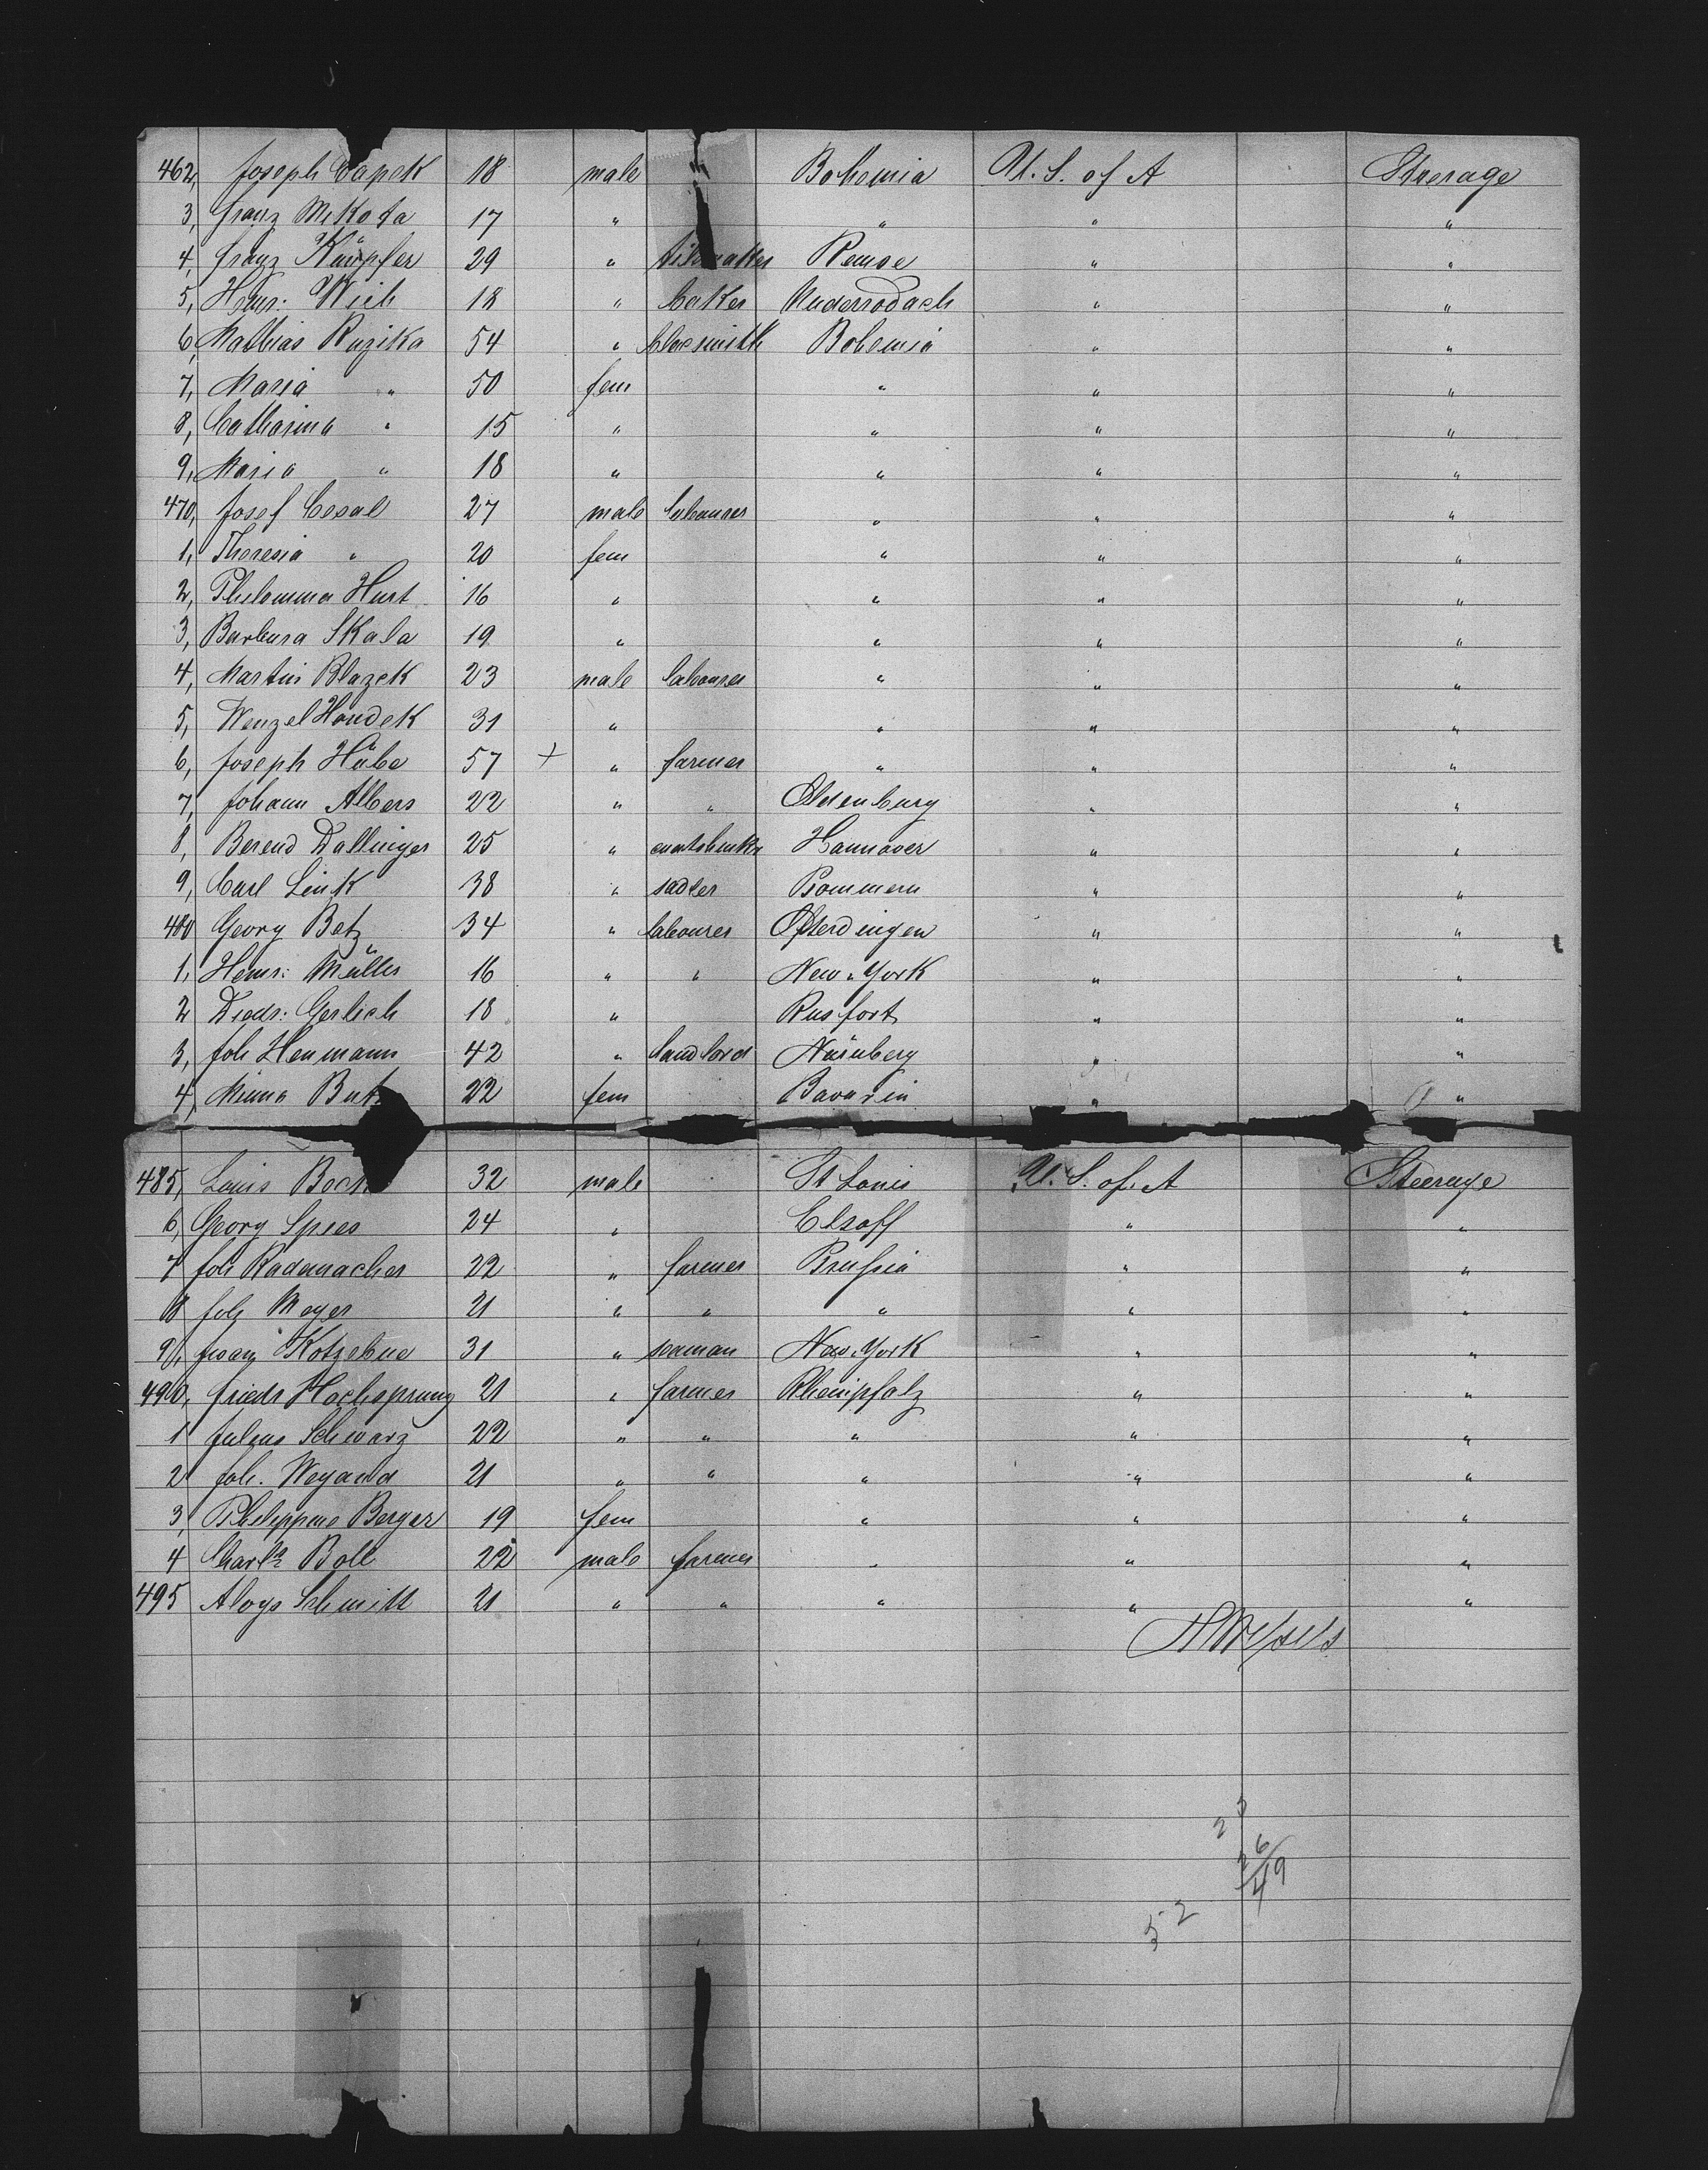 462, Joseph Capek 18 male Bohemia U. S. of A Steerage
3, Franz Mikota 17 " " " "
4, Franz Kämpfer 29 " Remse " "
5, Heinr: Weih 18 " baker Niederrodach " "
6, Mathias Ruzika 54 " blacsmith Bohemia " "
7, Maria " 50 fem " " "
8, Catharina " 15 " " " "
9, Maria " 18 " " " "
470, Josef Cesal 27 male labourer " " "
1, Theresia " 20 fem " " "
2, Philomina Hurt 16 " " " "
3, Barbara Skala 19 " " " "
4, Martin Blazek 23 male labourer " " "
5, Wenzel Houdek 31 " " " "
6, Joseph Hübe 57 + " farmer " " "
7, Johann Albers 22 " " Oldenburg " "
8, Berend Dallinger 25 " Hannover " "
9, Carl Link 38 " sadler Pommern " "
480 Georg Betz 34 " labourer Ofterdingen " "
1, Heinr: Müller 16 " " New-York " "
2 Diedr: Gerlich 18 " Rusfort " "
3, Joh Henmann 42 " landlord Nürnberg " "
4, Minna 22 fem Bavaria " "
485, Louis Bock 32 male St Louis U. S. of A Steerage
6, Georg Spies 24 " Elsoff " "
7 Joh Rademacher 22 " farmer Prussia " "
8 Joh Meyer 21 " " " " "
9, Franz Kotzebue 31 " seaman New-York " "
490, Friedr Hochsprung 21 " farmer Rheinpfalz " "
1 Julius Schwarz 22 " " " " "
2 Joh. Weyand 21 " " " " "
3, Philippine Berger 19 fem " " "
4 Charls Boll 22 male farmer " " "
495 Aloys Schmitt 21 " " " " "
HWessels
2 3
26
49
52